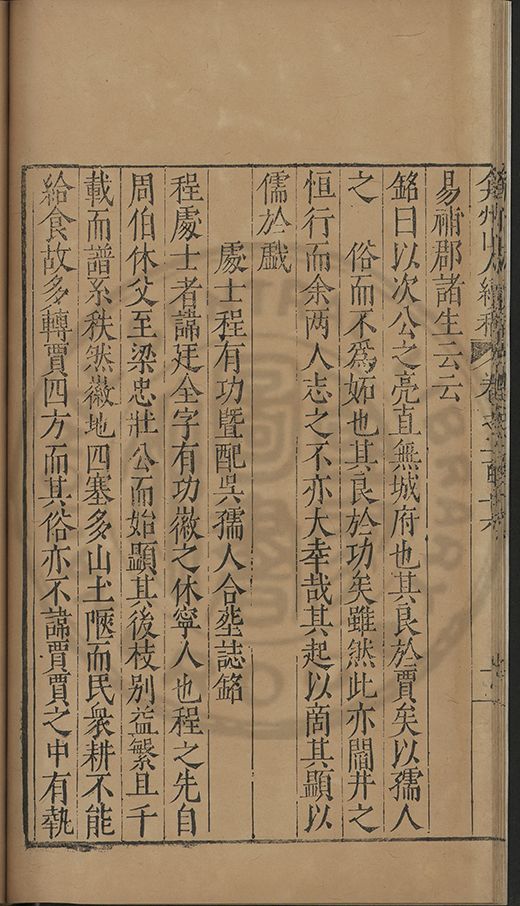 弇州山人續稿 卷之一百
易補郡諸生云云
銘曰以次公之亮直無城府也其良於賈矣以孺人
之 俗而不為妬也其良於功矣雖然此亦閭井之
恒行而余两人志之不亦大幸哉其起以啇其顯以
儒於戲
處士程有功暨配吳孺人合塟誌銘
程處士者諱廷全字有功徽之休寧人也程之先自
周伯休父至梁忠壯公而始顯其後枝别益繁且千
載而譜系秩然徽地四塞多山土陿而民衆耕不能
給食故多轉賈四方而其俗亦不諱賈賈之中有執